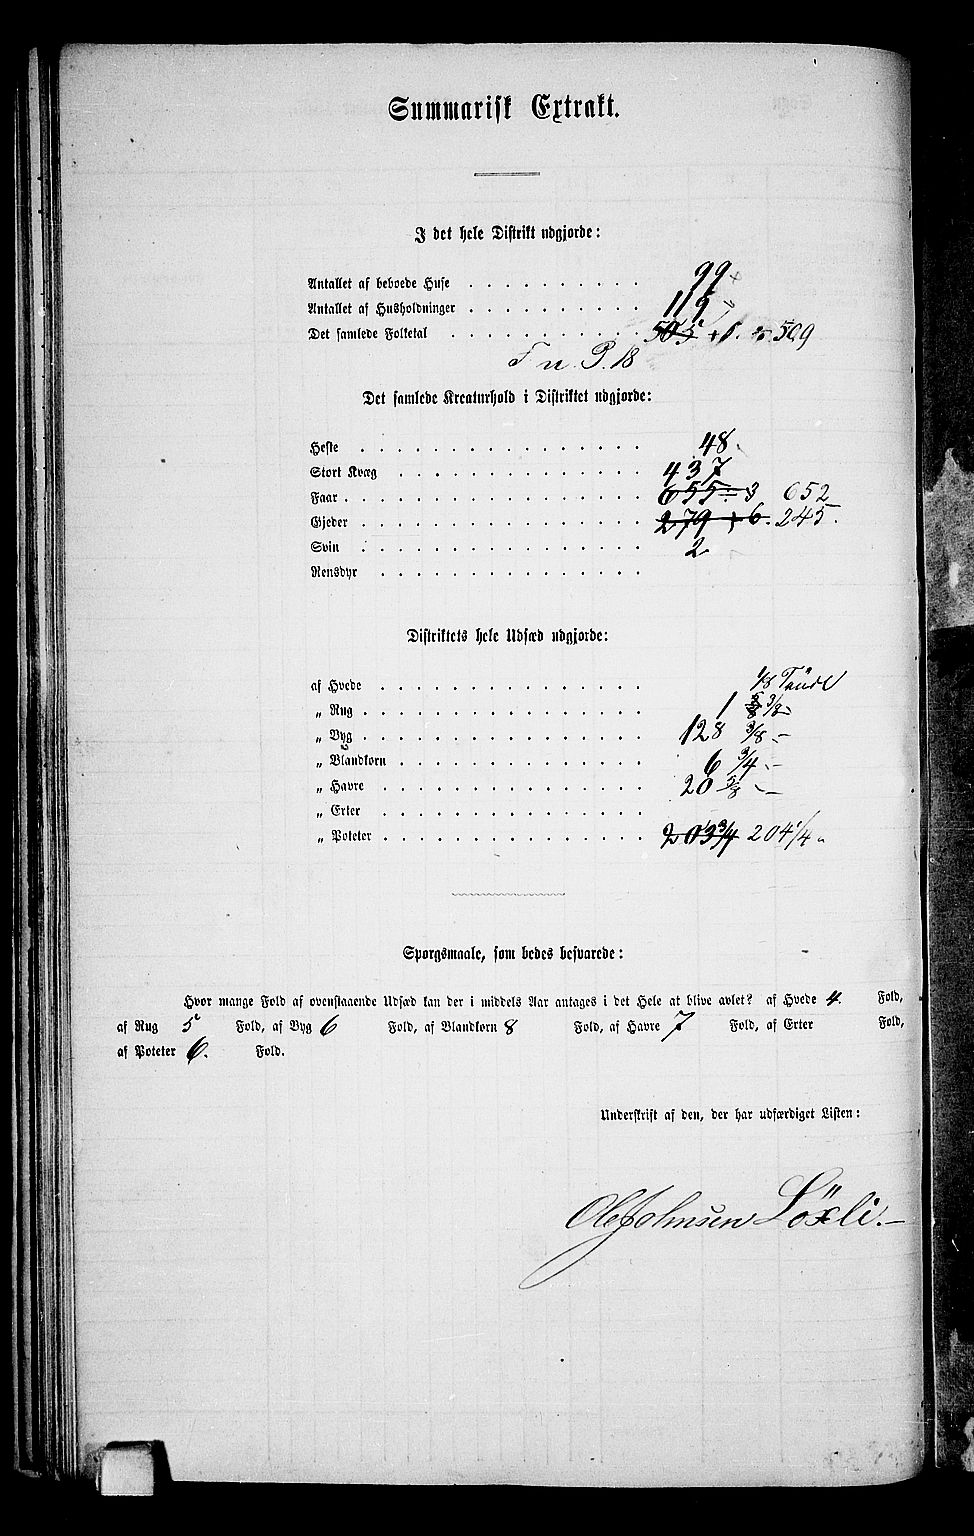 Summarisk Extrakt.
I det hele Distrikt udgjorde:
Antallet af beboede Huse . . . . . . . . . . 99
Antallet af Husholdninger . . . . . . . . . . 119
Det samlede Folketal . . . . . . . . . . 505 + 1. 509
F n. P. 18
Det samlede Kreaturhold i Distriktet udgjorde:
Heste . . . . . . . . . . 48
Stort Kvæg . . . . . . . . . . 437
Faar . . . . . . . . . . 655 ÷ 3 652
Gjeder . . . . . . . . . . 279 + 6. 245.
Svin . . . . . . . . . . 2
Rensdyr . . . . . . . . . .
Distriktets hele Udsæd udgjorde:
af Hvede . . . . . . . . . . 1/8 Tönde
„ Rug . . . . . . . . . . 1 3/8 -
„ Byg . . . . . . . . . . 128 3/8 -
„ Blandkorn . . . . . . . . . . 6 3/4 -
„ Havre . . . . . . . . . . 20 3/8 -
„ Erter . . . . . . . . . .
„ Poteter . . . . . . . . . . 203 3/4 204 1/4 „
Spørgsmaale, som bedes besvarede:
Hvor mange Fold af ovenstaaende Udsæd kan der i middels Aar antages i det Hele at blive avlet? af Hvede 4 Fold,
af Rug 5 Fold, af Byg 6 Fold, af Blandkorn 8 Fold, af Havre 7 Fold, af Erter Fold,
af Poteter 6. Fold.
Underskrift af den, der har udfærdiget Listen:
Ole Johnsen Löxli.